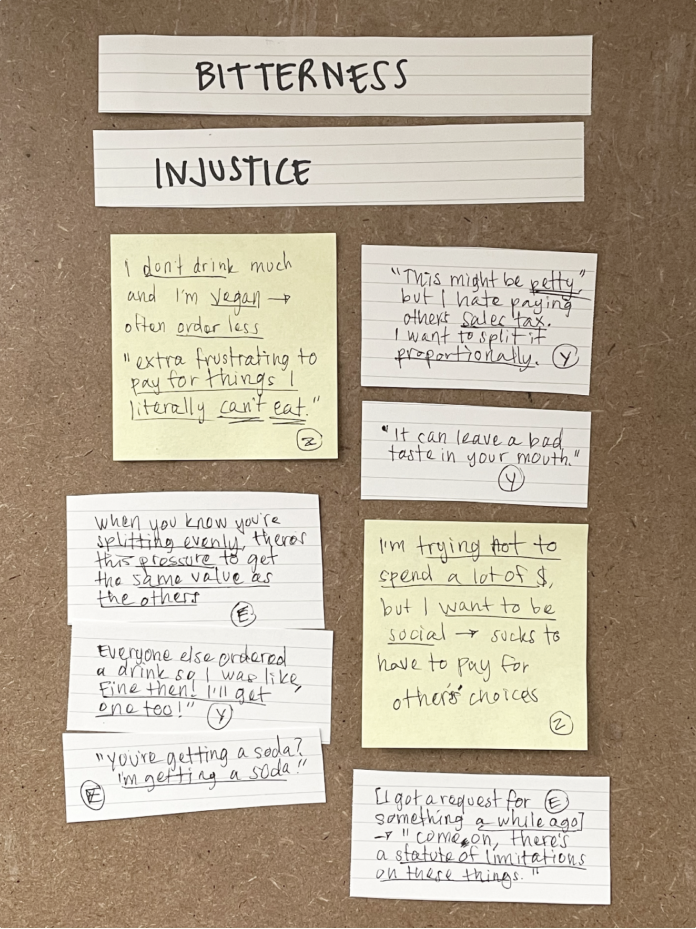 BITTERNESS
INJUSTICE
I don't drink much
and I'm vegan →
often order less
"extra frustrating to
pay for things I
literally can't eat."
Z
"This might be petty,"
but I hate paying
others sales tax.
I want to split it
proportionally. Y
"It can leave a bad
taste in your mouth."
Y
When you know you're
splitting evenly, there's
this pressure to get
the same value as
the others
E
Everyone else ordered
a drink so I was like,
Fine then! I'll get
one too!" Y
"You're getting a soda?
I'm getting a soda!"
E
I'm trying not to
spend a lot of $,
but I want to be
social → sucks to
have to pay for
other's choices
Z
[I got a request for E
something a while ago]
→ "come on, there's
a statute of limitations
on these things."